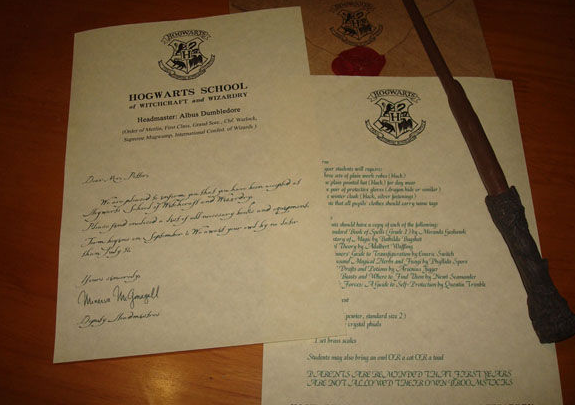 HOGWARTS
HOGWARTS SCHOOL
of WITCHCRAFT and WIZARDRY
Headmaster: Albus Dumbledore
(Order of Merlin, First Class, Grand Sorc., Chf. Warlock,
Supreme Mugwump, International Confed. of Wizards)
Dear Mr. Potter,
We are pleased to inform you that you have been accepted at
Hogwarts School of Witchcraft and Wizardry.
Please find enclosed a list of all necessary books and equipment.
Term begins on September 1. We await your owl by no later
than July 31.
Yours sincerely,
Minerva McGonagall
Deputy Headmistress
HOGWARTS
HOGWARTS
year students will require:
three sets of plain work robes (black)
plain pointed hat (black) for day wear
pair of protective gloves (dragon hide or similar)
winter cloak (black, silver fastenings)
that all pupils' clothes should carry name tags
should have a copy of each of the following:
Book of Spells (Grade 2) by Miranda Goshawk
of Magic by Bathilda Bagshot
Theory by Adalbert Waffling
Guide to Transfiguration by Emeric Switch
Magical Herbs and Fungi by Phyllida Spore
Drafts and Potions by Arsenius Jigger
Beasts and Where to Find Them by Newt Scamander
Forces: A Guide to Self-Protection by Quentin Trimble
pewter, standard size 2)
crystal phials
1 set brass scales
Students may also bring an owl OR a cat OR a toad
PARENTS ARE REMINDED THAT FIRST YEARS
ARE NOT ALLOWED THEIR OWN BROOMSTICKS